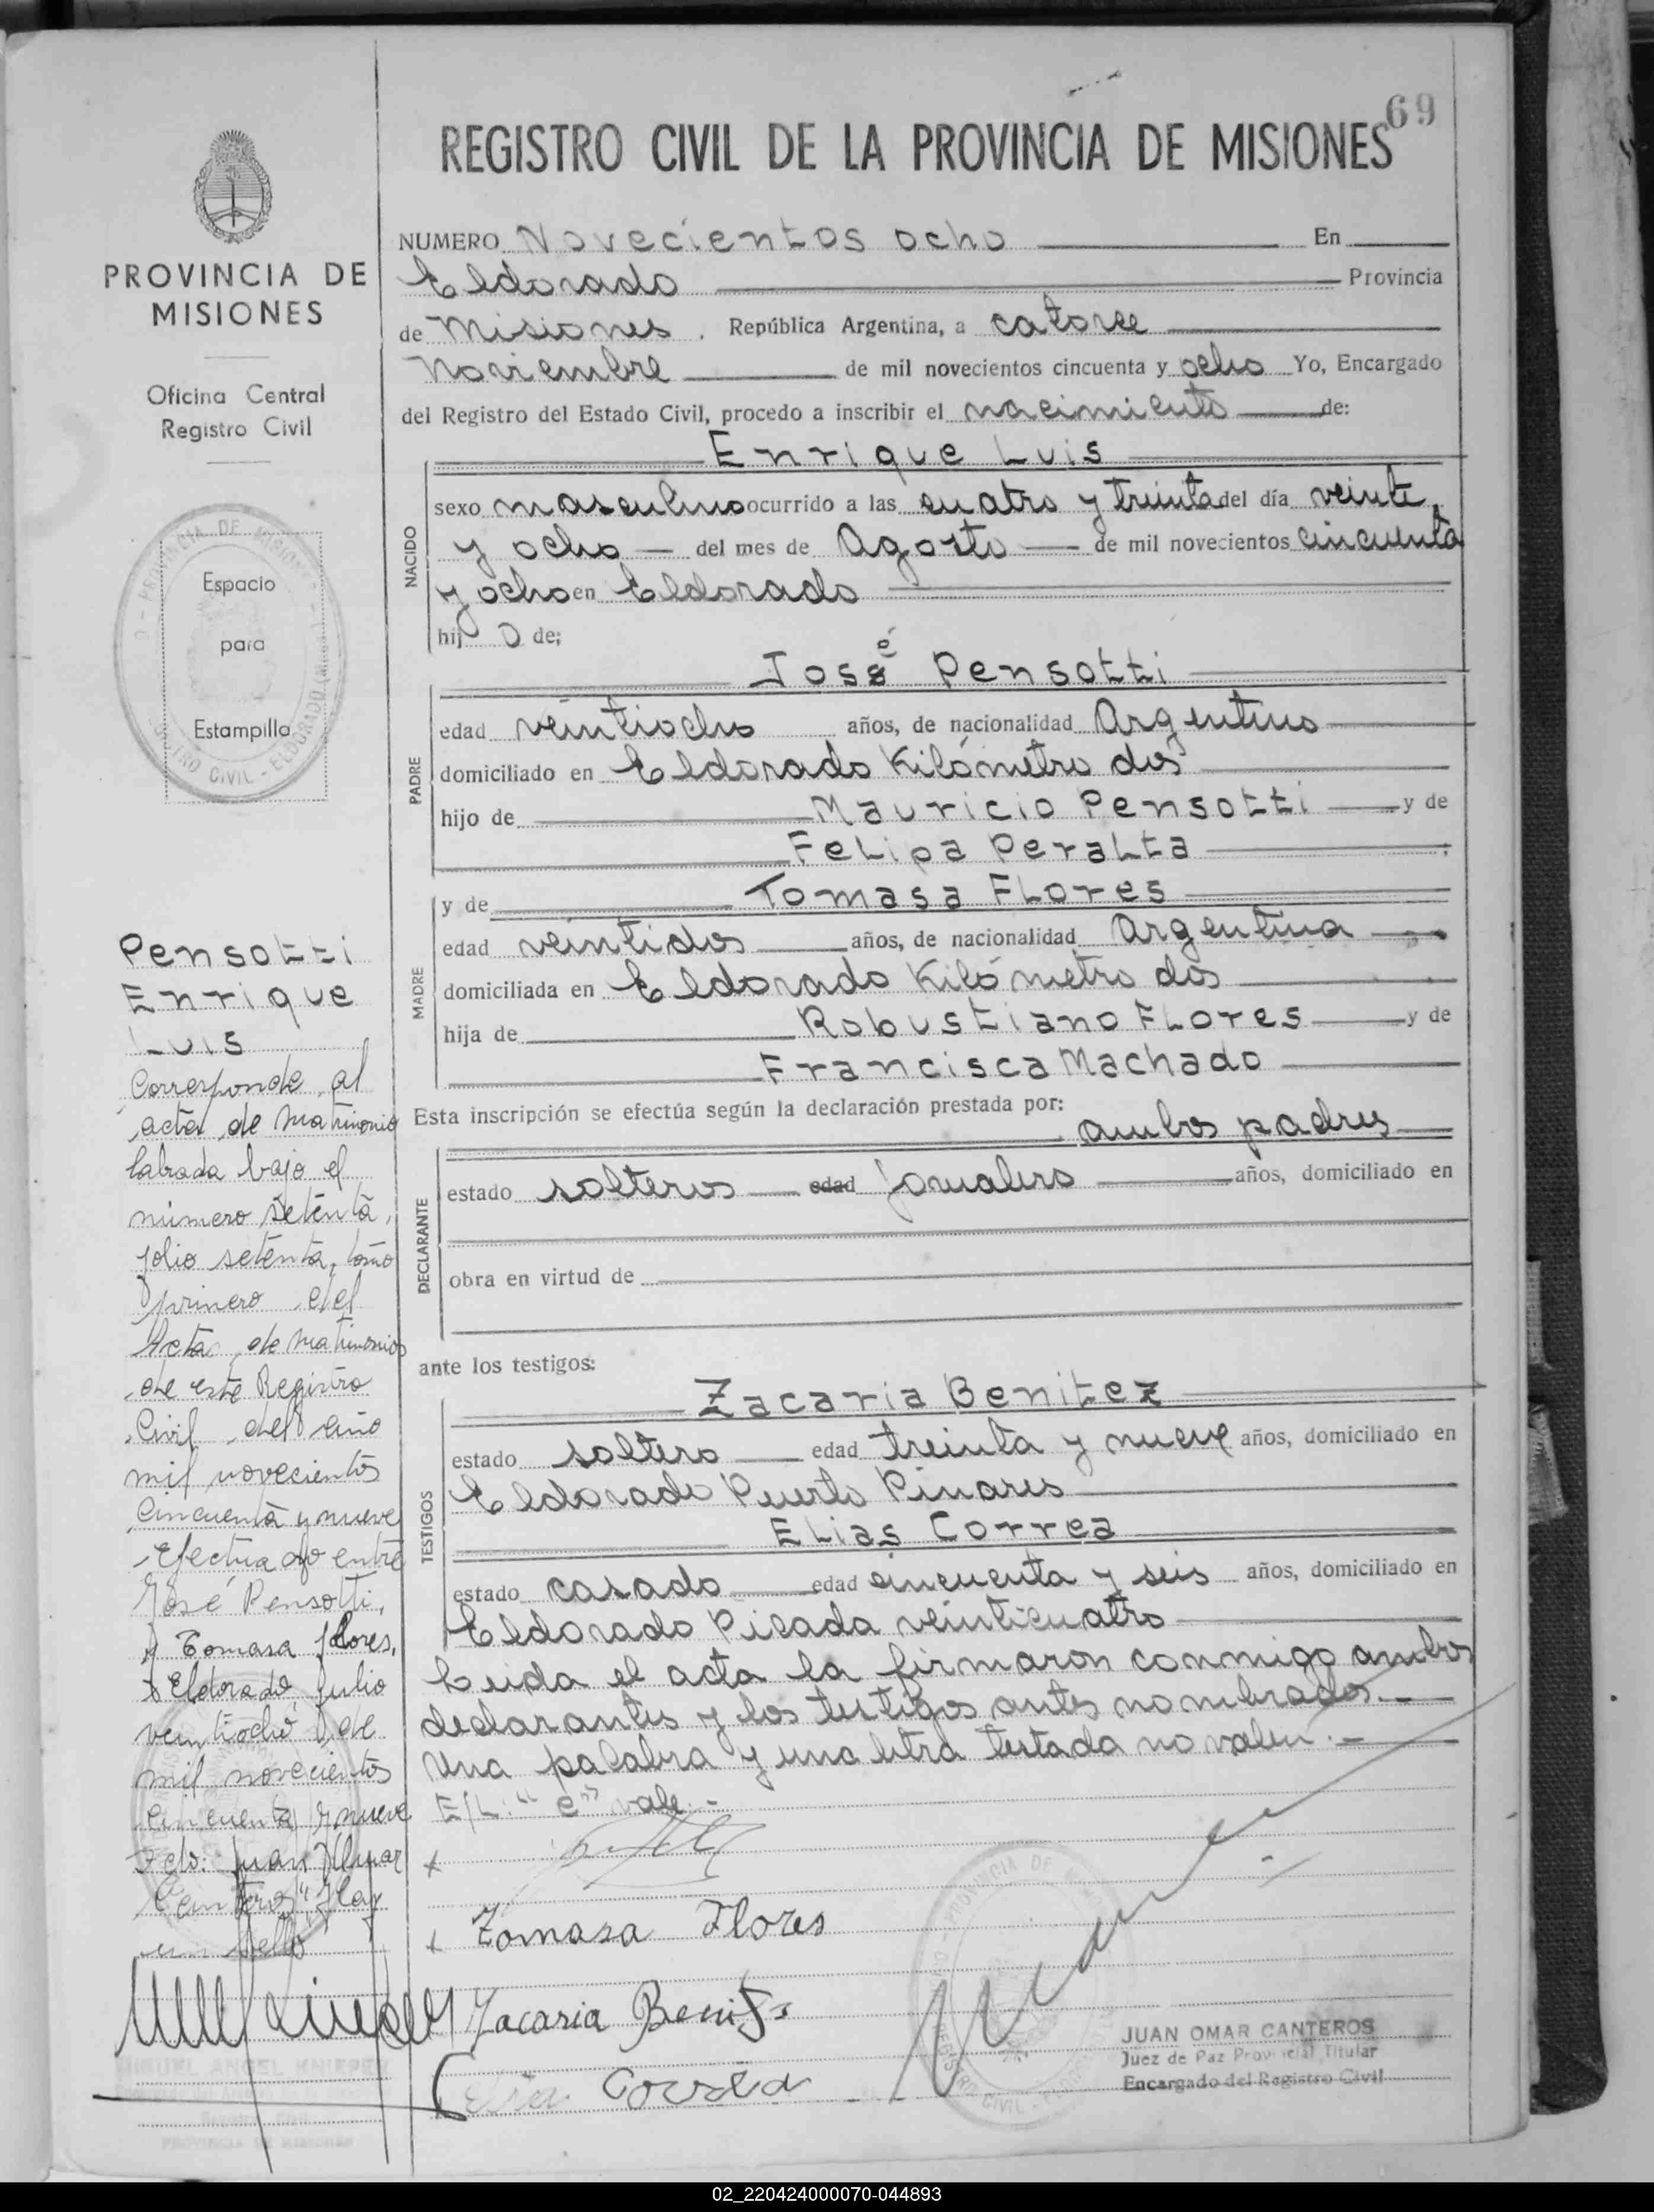 69
REGISTRO CIVIL DE LA PROVINCIA DE MISIONES
PROVINCIA DE
MISIONES
Oficina Central
Registro Civil
Espacio
para
Estampilla
Pensotti
Enrique
Luis
Corresponde al
acta de matrimonio
labrada bajo el
número setenta,
folio setenta, tomo
primero del
Acta de matrimonios
de este Registro
Civil del año
mil novecientos
cincuenta y nueve
efectuado entre
José Pensotti,
y Tomasa Flores,
Eldorado, Julio
veintiocho de
mil novecientos
cincuenta y nueve
Fdo: Juan Omar
Canteros" Hay
un sello
MIGUEL ANGEL KNIEPER
NUMERO Novecientos ocho En
Eldorado Provincia
de Misiones. República Argentina, a catorce
Noviembre de mil novecientos cincuenta y ocho Yo, Encargado
del Registro del Estado Civil, procedo a inscribir el nacimiento de:
Enrique Luis
NACIDO
sexo masculino ocurrido a las cuatro y treinta del día veinte
y ocho del mes de Agosto de mil novecientos cincuenta
y ocho en Eldorado
hijo de;
é
José Pensotti
PADRE
edad veintiocho años, de nacionalidad Argentino
domiciliado en Eldorado Kilómetro dos
hijo de Mauricio Pensotti y de
Felipa Peralta
y de Tomasa Flores
MADRE
edad veintidos años, de nacionalidad Argentina
domiciliada en Eldorado Kilómetro dos
hija de Robustiano Flores y de
Francisca Machado
Esta inscripción se efectúa según la declaración prestada por:
ambos padres
DECLARANTE
estado solteros edad jornalero años, domiciliado en
obra en virtud de
ante los testigos:
Zacaria Benitez
TESTIGOS
estado soltero edad treinta y nueve años, domiciliado en
Eldorado Puerto Pinares
Elias Correa
estado casado edad cincuenta y seis años, domiciliado en
Eldorado Picada veinticuatro
Leida el acta la firmaron conmigo ambos
declarantes y los testigos antes nombrados.-
Una palabra y una letra testada no valen.-
E/L: "é" vale.-
x
x Tomasa Flores
Zacaria Benites
Elia Correa
JUAN OMAR CANTEROS
Juez de Paz Provincial Titular
Encargado del Registro Civil
02_220424000070-044893